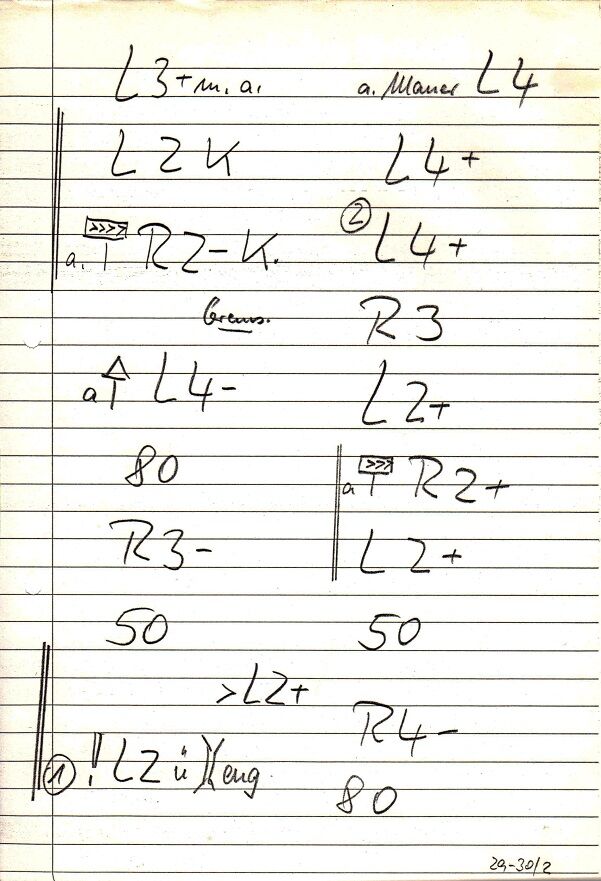 L3+ m. a.
L2 K
a. >>>> R2- K.
Brems.
a L4-
80
R3-
50
>L2+
① !! L2 ü )( eng
a. Mauer L4
L4+
② L4+
R3
L2+
a >>> R2+
L2+
50
R4-
80
29-30/2